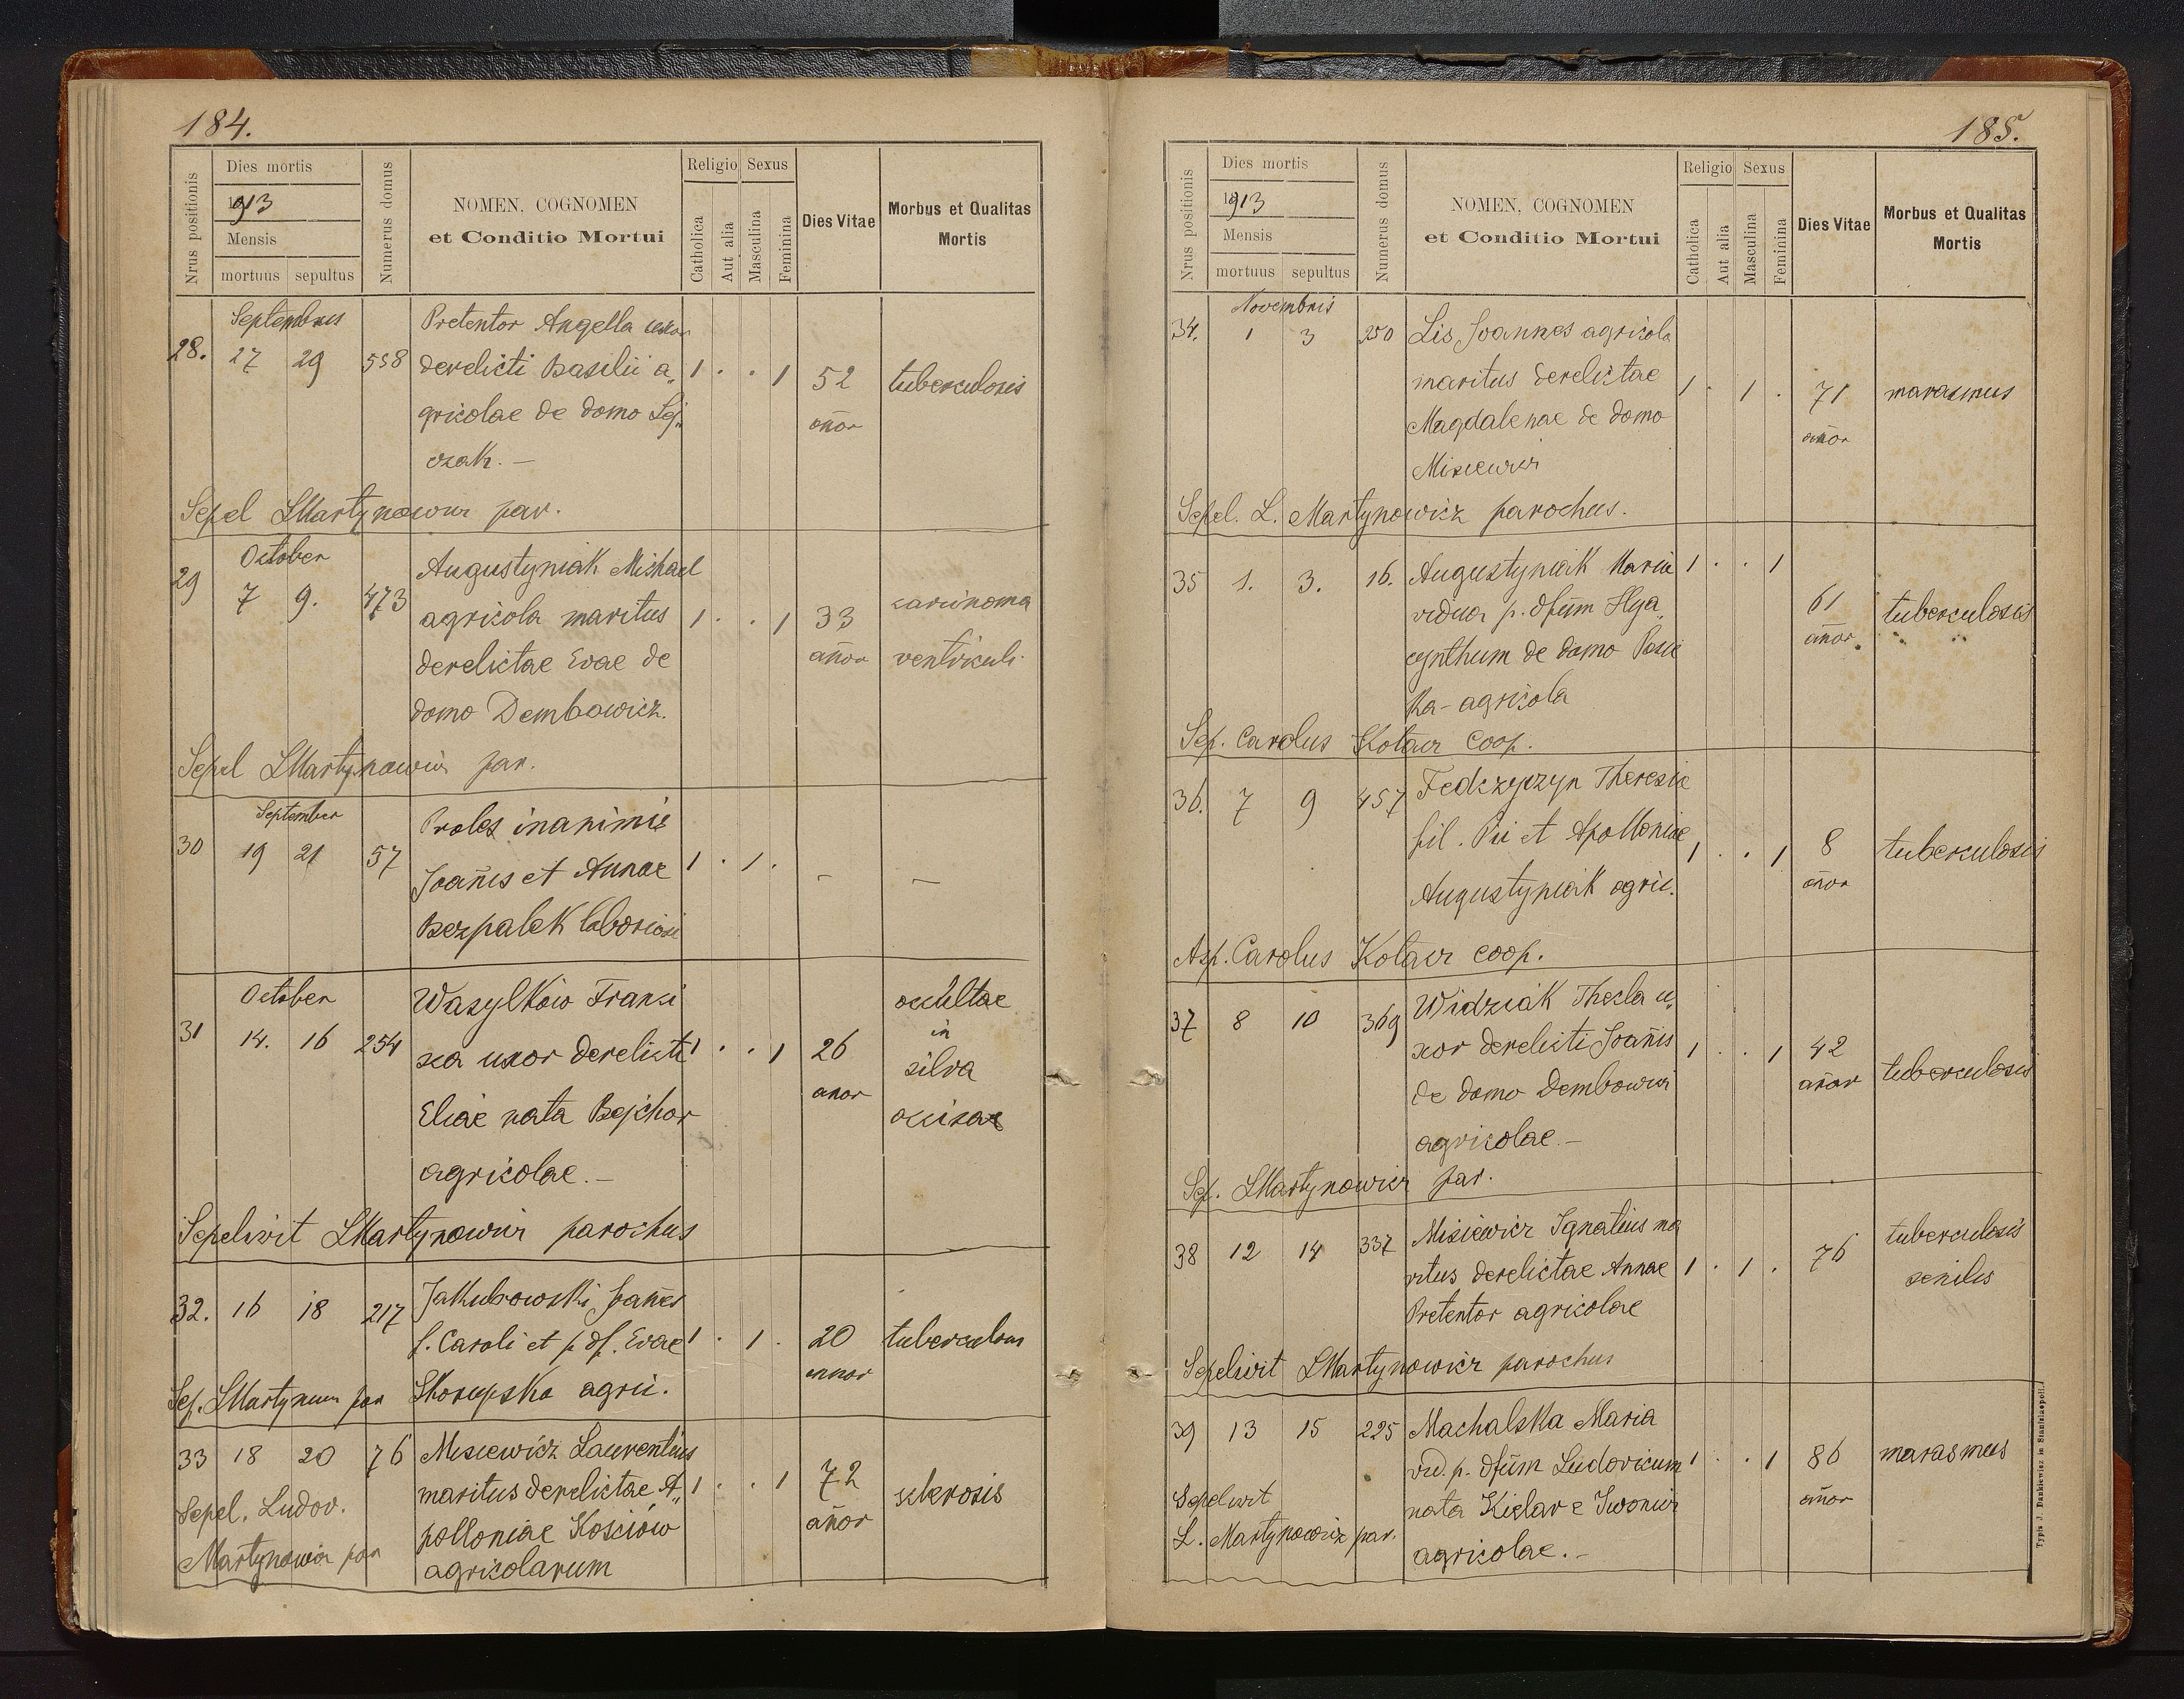 184.
Nrus positionis
Dies mortis
1913
Mensis
mortuus sepultus
Numerus domus
NOMEN, COGNOMEN
et Conditio Mortui
Religio Sexus
Catholica
Aut alia
Masculina
Feminina
Dies Vitae
Morbus et Qualitas
Mortis
Septembris
28. 27 29 558
Pretentor Angella uxor
derelicti Basilii a„
gricolae de domo Lej„
czak. —
1 . . 1
52
añor
tuberculosis
Sepel LMartynowicz par.
October
29 7 9. 473
Augustyniak Michael
agricola maritus
derelictae Evae de
domo Dembowicz.
1 . . 1
33
añor
carcinoma
ventriculi
Sepel LMartynowicz par.
September
30 19 21 57
Proles inanimis
Joañis et Annae
Bezpalek laboriosi
1 . 1 .
—
—
October
31 14. 16 254
Wasylków Franci
sca uxor derelicti
Eliae nata Bejchar
agricolae. —
1 . . 1
26
anor
ocultae
in
silva
occisae
Sepelivit LMartynowicz parochus
32. 16 18 217
Jakubowski Joañes
f. Caroli et p. df. Evae
Skorupska agric.
1 . 1 .
20
annor
tuberculosis
Sep. LMartynowicz par
33 18 20 76
Misiewicz Laurentius
maritus derelictae A„
polloniae Kosciów
agricolarum
1 . . 1
72
añor
sclerosis
Sepel. Ludov.
Martynowicz par
185.
Nrus positionis
Dies mortis
1913
Mensis
mortuus sepultus
Numerus domus
NOMEN, COGNOMEN
et Conditio Mortui
Religio Sexus
Catholica
Aut alia
Masculina
Feminina
Dies Vitae
Morbus et Qualitas
Mortis
Novembris
34. 1 3 250
Lis Joannes agricola
maritus derelictae
Magdalenae de domo
Misiewicz
1 . 1 .
71
añor
marasmus
Sepel. L. Martynowicz parochus.
35 1. 3. 16.
Augustyniak Maria
vidua p. dfūm Hya„
cynthum de domo
ka - agricola
1 . . 1
61
añor
tuberculosis
Sep. Carolus Kotacz coop.
36. 7 9 457
Fedczyczyn Theresia
fil. Pii et Apolloniae
Augustyniak agric.
1 . . 1
8
añor
tuberculosis
Asp. Carolus Kotacz coop.
37 8 10 369
Widziak Thecla u„
xor derelicti Joañis
de domo Dembowicz
agricolae. —
1 . . 1
42
añor
tuberculosis
Sep. LMartynowicz par.
38 12 14 337
Misiewicz Ignatius ma
ritus derelictae Annae
Pretentor agricolae
1 . 1 .
76
tuberculosis
senilis
Sepelivit LMartynowicz parochus
39 13 15 225
Machalska Maria
vid. p. dfūm Ludovicum
nata Kielar e Iwonicz
agricolae. —
1 . . 1
86
añor
marasmus
Sepelivit
L. Martynowicz par.
Typis J. Dankiewicz in Stanislaopoli.